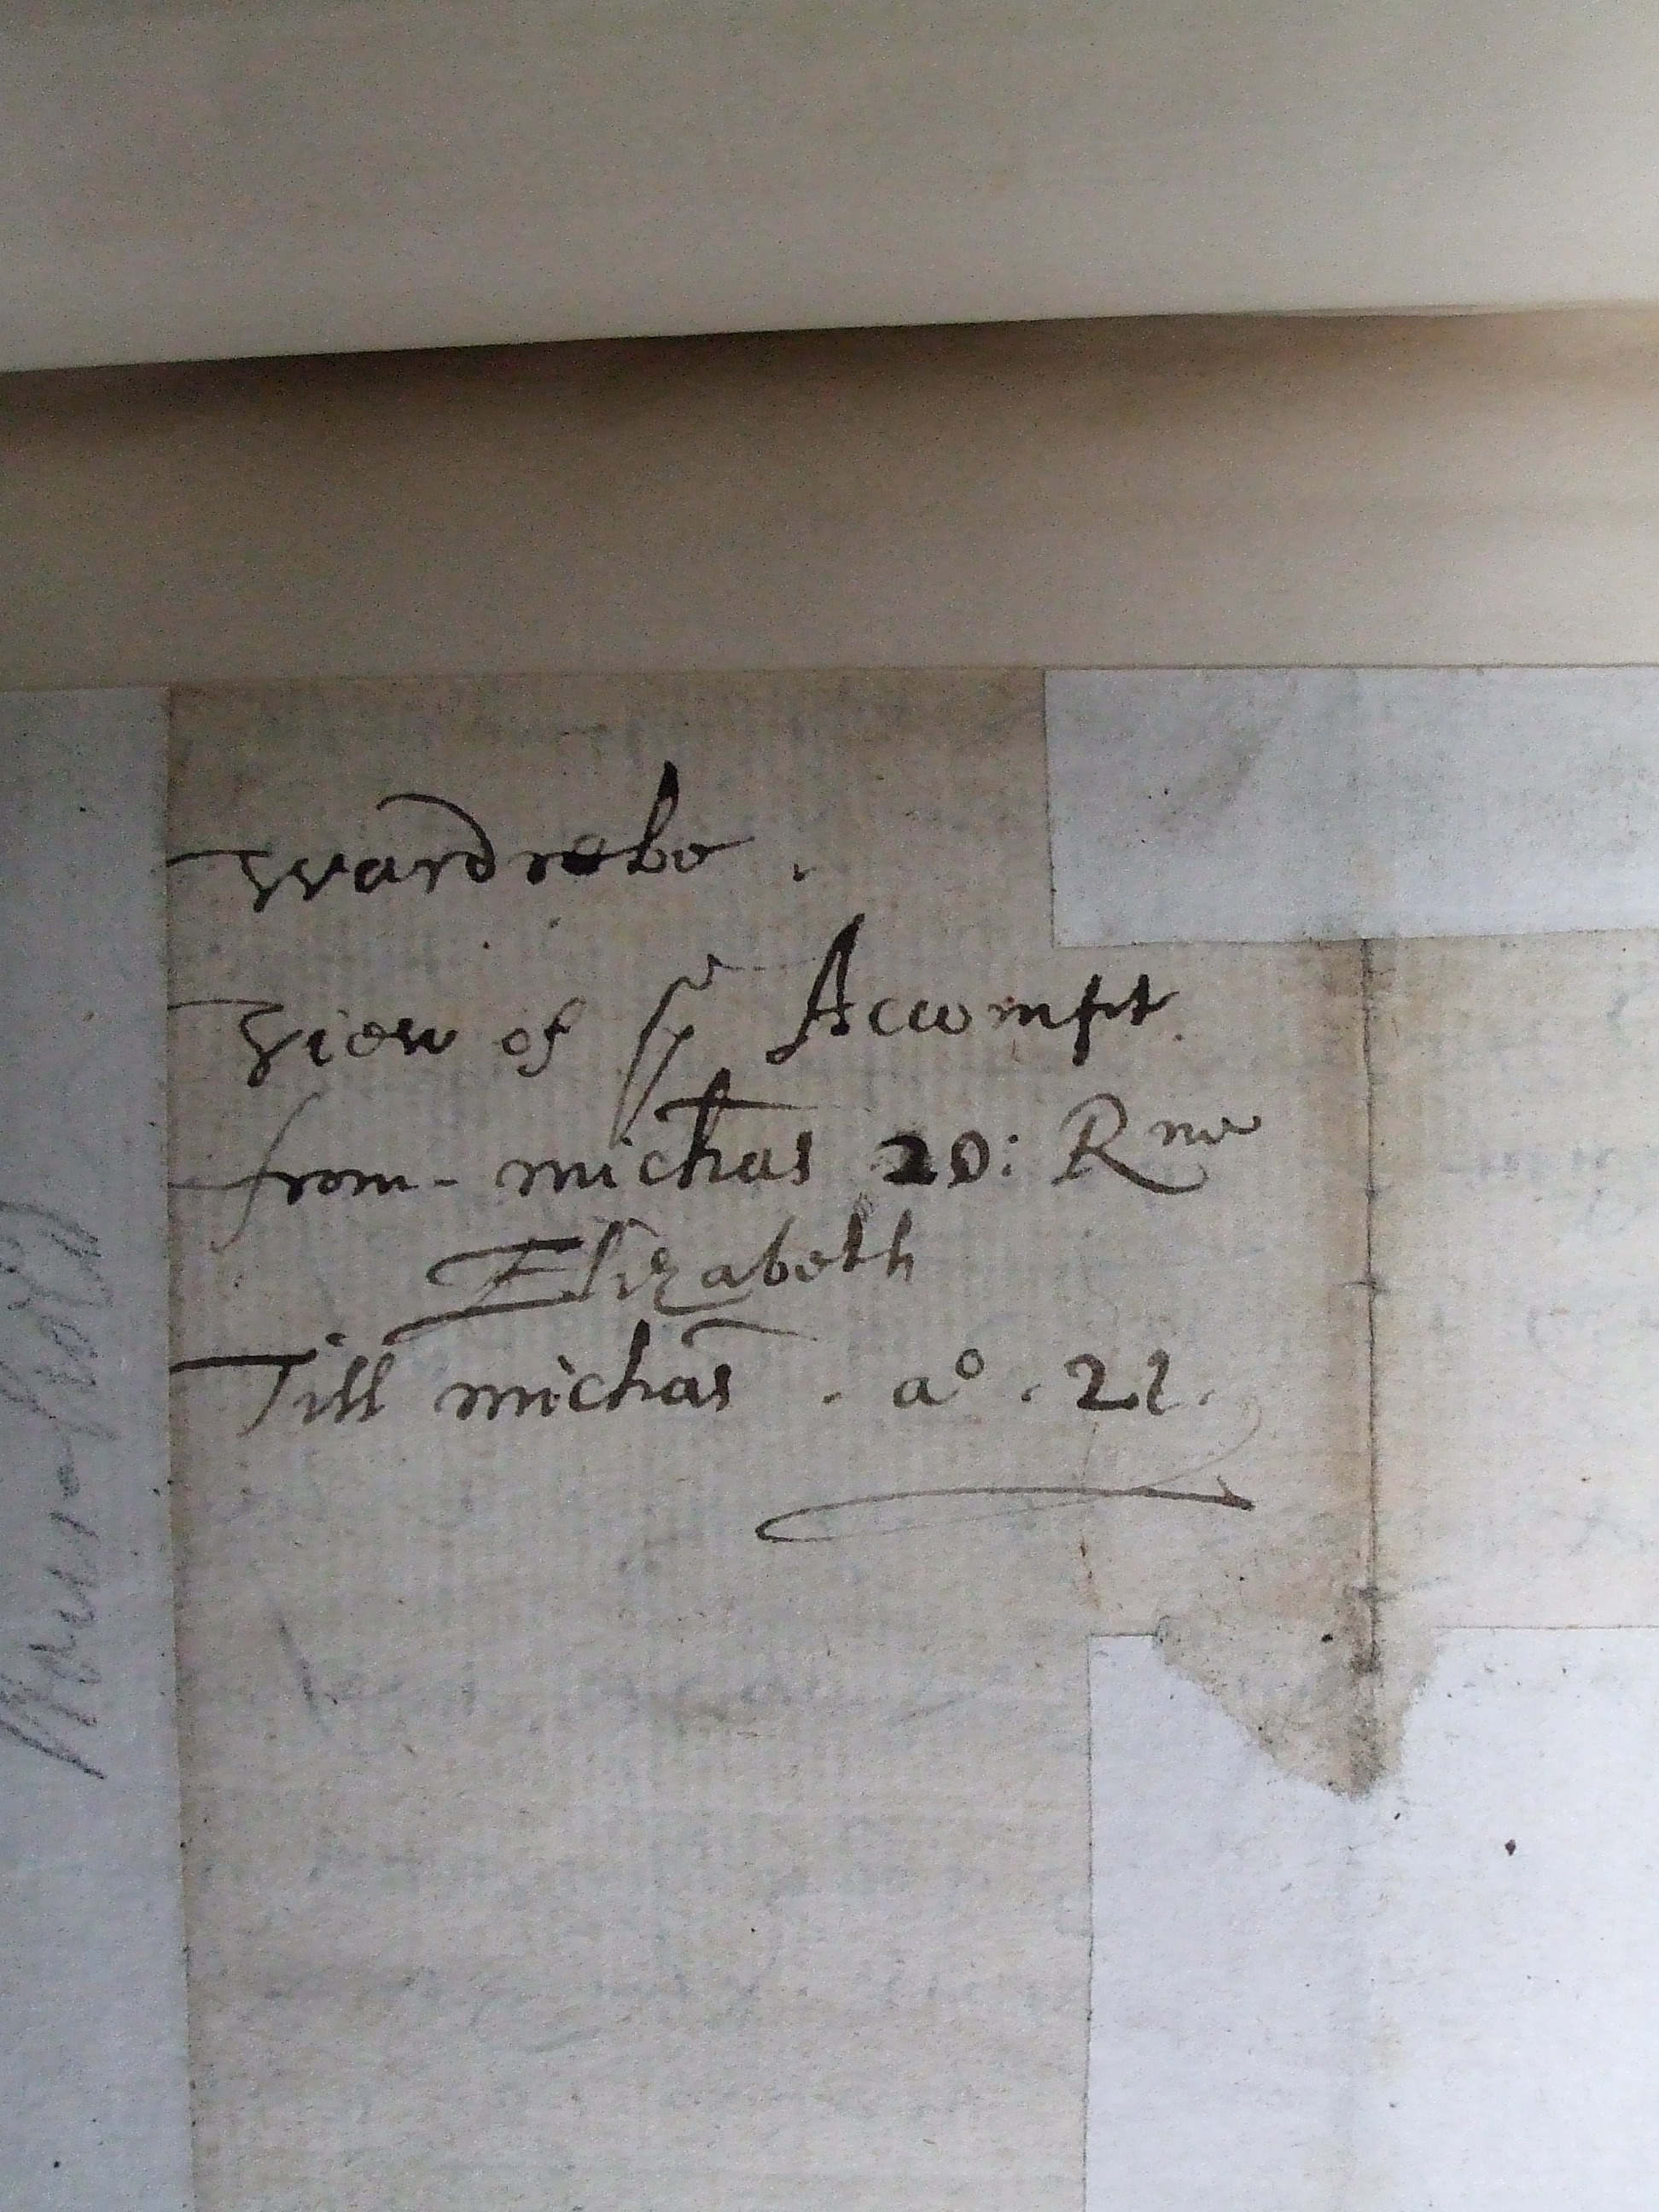 wardrobe .
View of yr Accompt
from - michas 20: Rne
Elizabeth
Till michas . ao . 21.